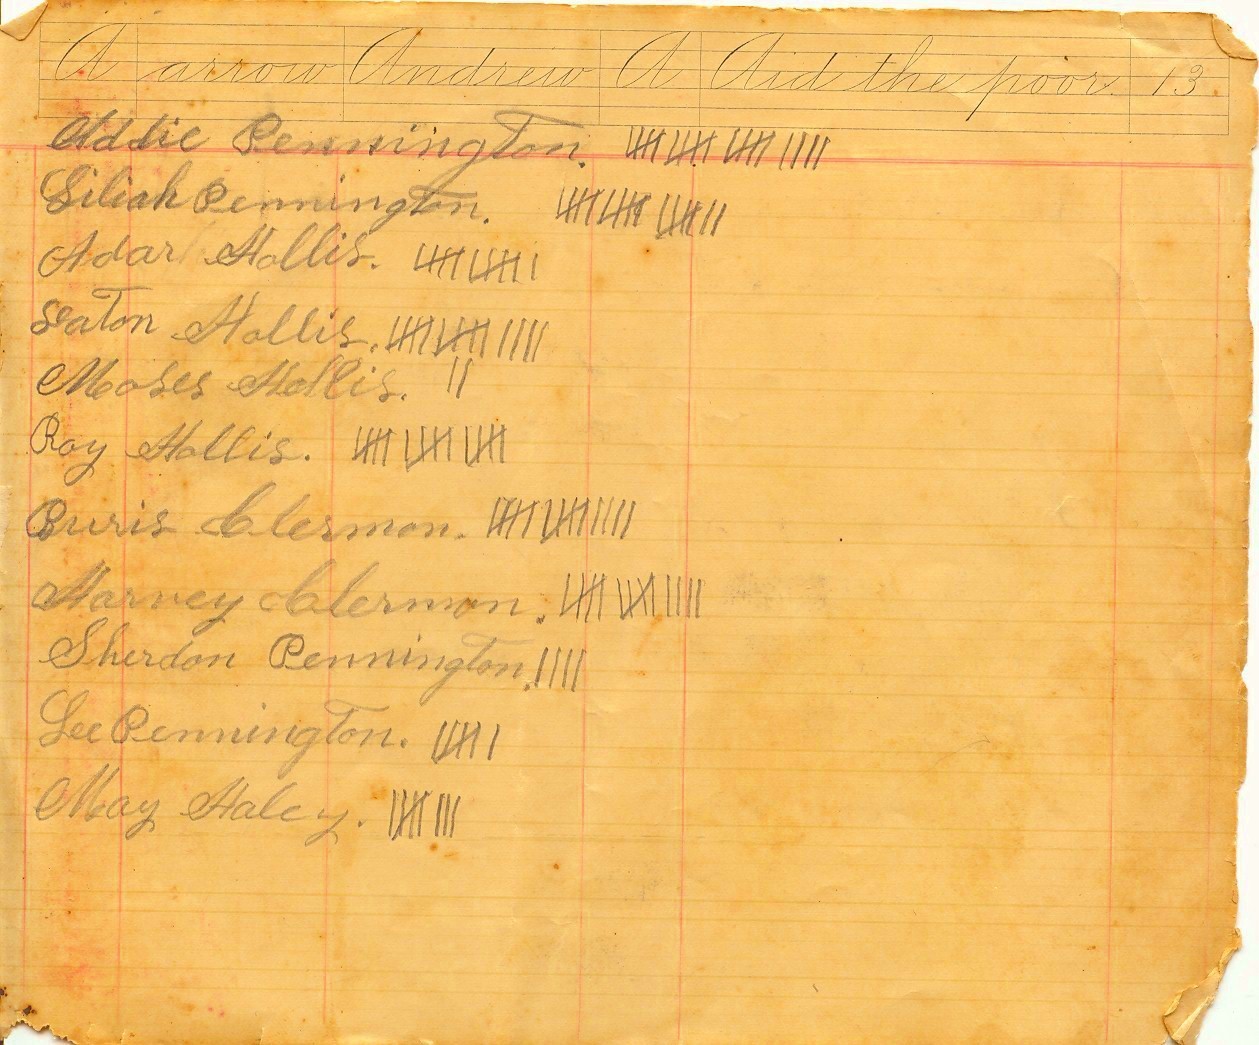 A arrow Andrew A Aid the poor. 13
Addie Pennington.
Liliah Pennington.
Adar Hollis.
Eaton Hollis.
Moses Hollis.
Roy Hollis.
Buris Clermon.
Harvey Clermon.
Sherdon Pennington.
Lee Pennington.
May Haley.